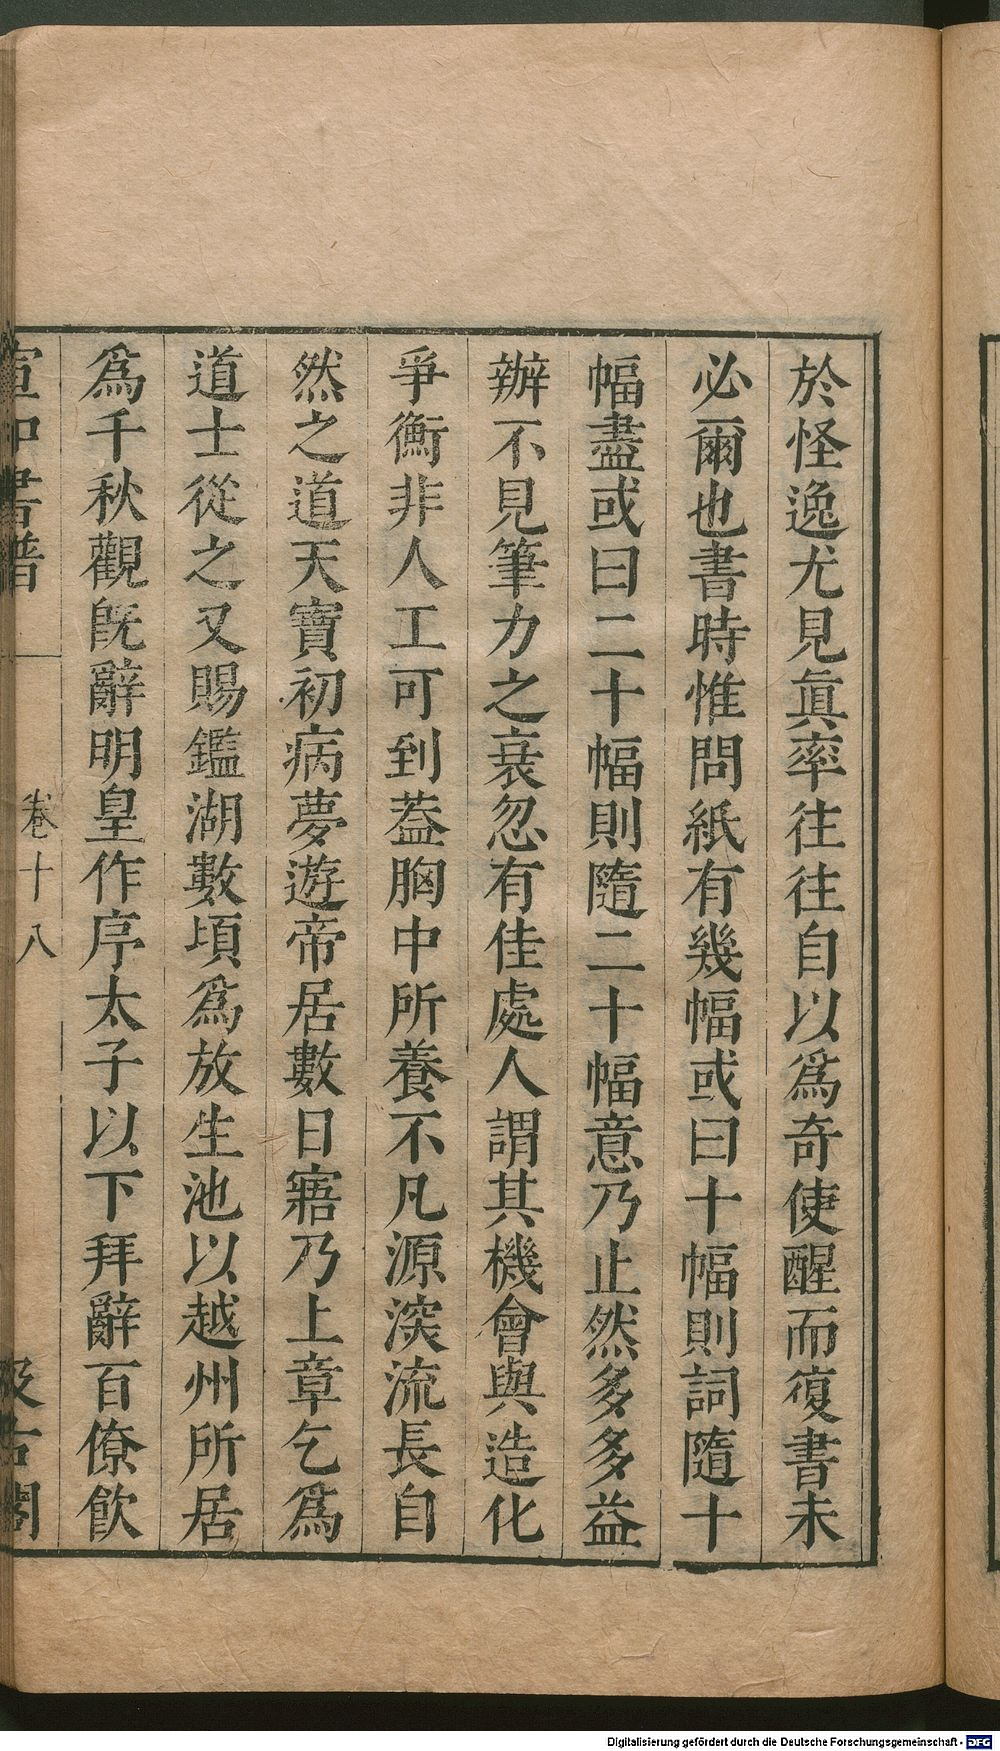 於怪逸尤見眞率往往自以爲奇使醒而復書未
必爾也書時惟問紙有幾幅或曰十幅則詞隨十
幅盡或曰二十幅則隨二十幅意乃止然多多益
辦不見筆力之衰忽有佳處人謂其機會與造化
爭衡非人工可到葢胸中所養不凡源深流長自
然之道天寶初病夢遊帝居數日寤乃上章乞爲
道士從之又賜鑑湖數頃爲放生池以越州所居
爲千秋觀旣辭明皇作序太子以下拜辭百僚飲
宣和書譜 卷十八 汲古閣
Digitalisierung gefördert durch die Deutsche Forschungsgemeinschaft - DFG